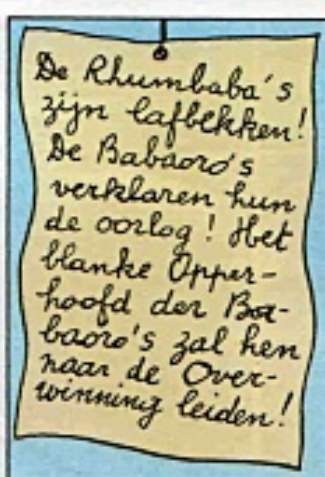 De Rhumbaba's
zijn lafbekken!
De Babaoro's
verklaren hun
de oorlog! Het
blanke Opper-
hoofd der Ba-
baoro's zal hen
naar de Over-
winning leiden!